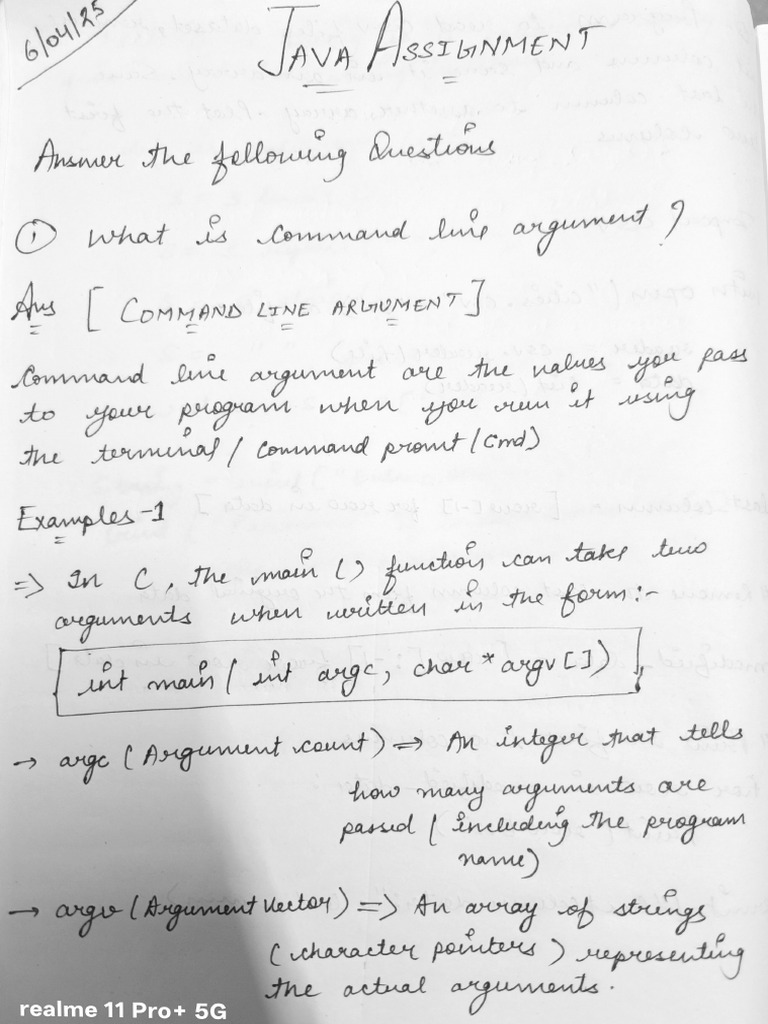 6/04/25
JAVA ASSIGNMENT
Answer the following Questions
① What is command line argument?
Ans [COMMAND LINE ARGUMENT]
Command line argument are the values you pass
to your program when you run it using
the terminal / Command promt / Cmd)
Examples -1
⇒ In C, the main () function can take two
arguments when written in the form:-
int main ( int argc, char * argv [])
→ argc (Argument count) ⇒ An integer that tells
how many arguments are
passed ( including the program
name)
→ argv (Argument Vector) ⇒ An array of strings
(character pointers) representing
the actual arguments.
realme 11 Pro+ 5G